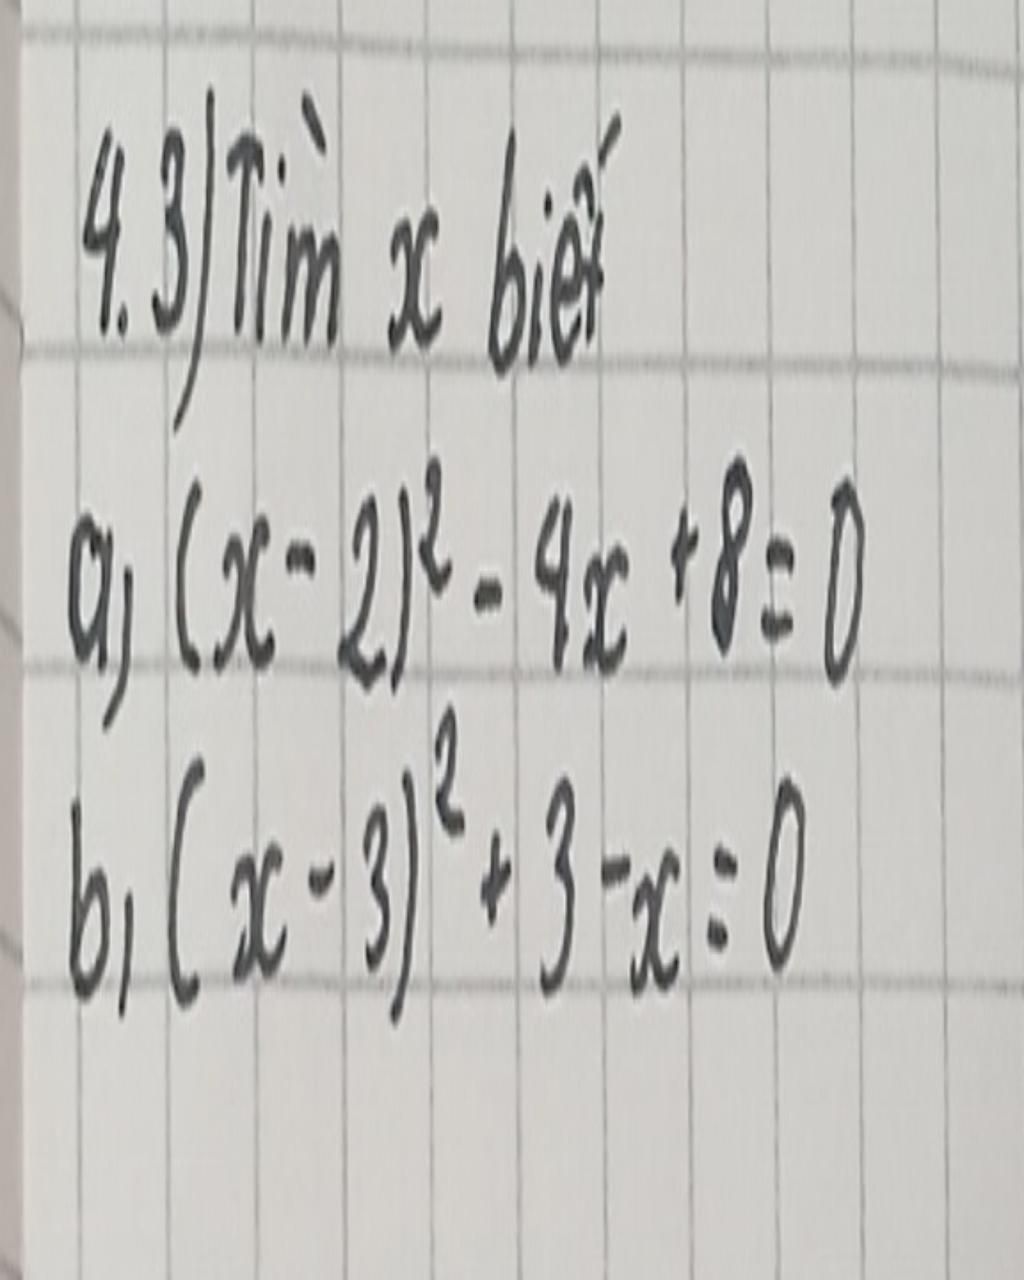 4.3) Tìm x biết
a, (x - 2)² - 4x + 8 = 0
b, (x - 3)² + 3 - x = 0